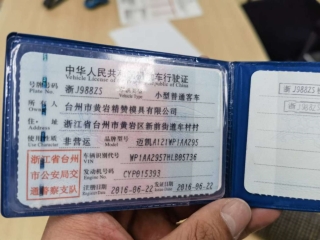 中华人民共和国机动车行驶证
Vehicle License of the People's Republic of China
号牌号码 浙J988Z5 车辆类型 小型普通客车
Plate No.
所有人 台州市黄岩精赞模具有限公司
Owner
住址 浙江省台州市黄岩区新前街道车村村
Address
使用性质 非营运 品牌型号 迈凯A121WP1AA295
Use Character Model
浙江省台州市公安局交通警察支队
车辆识别代号 WP1AA295
VIN
发动机号码 CYP015393
Engine No.
注册日期 2016-06-22 发证日期 2016-06-22
Register Date Issue Date
浙J988Z5